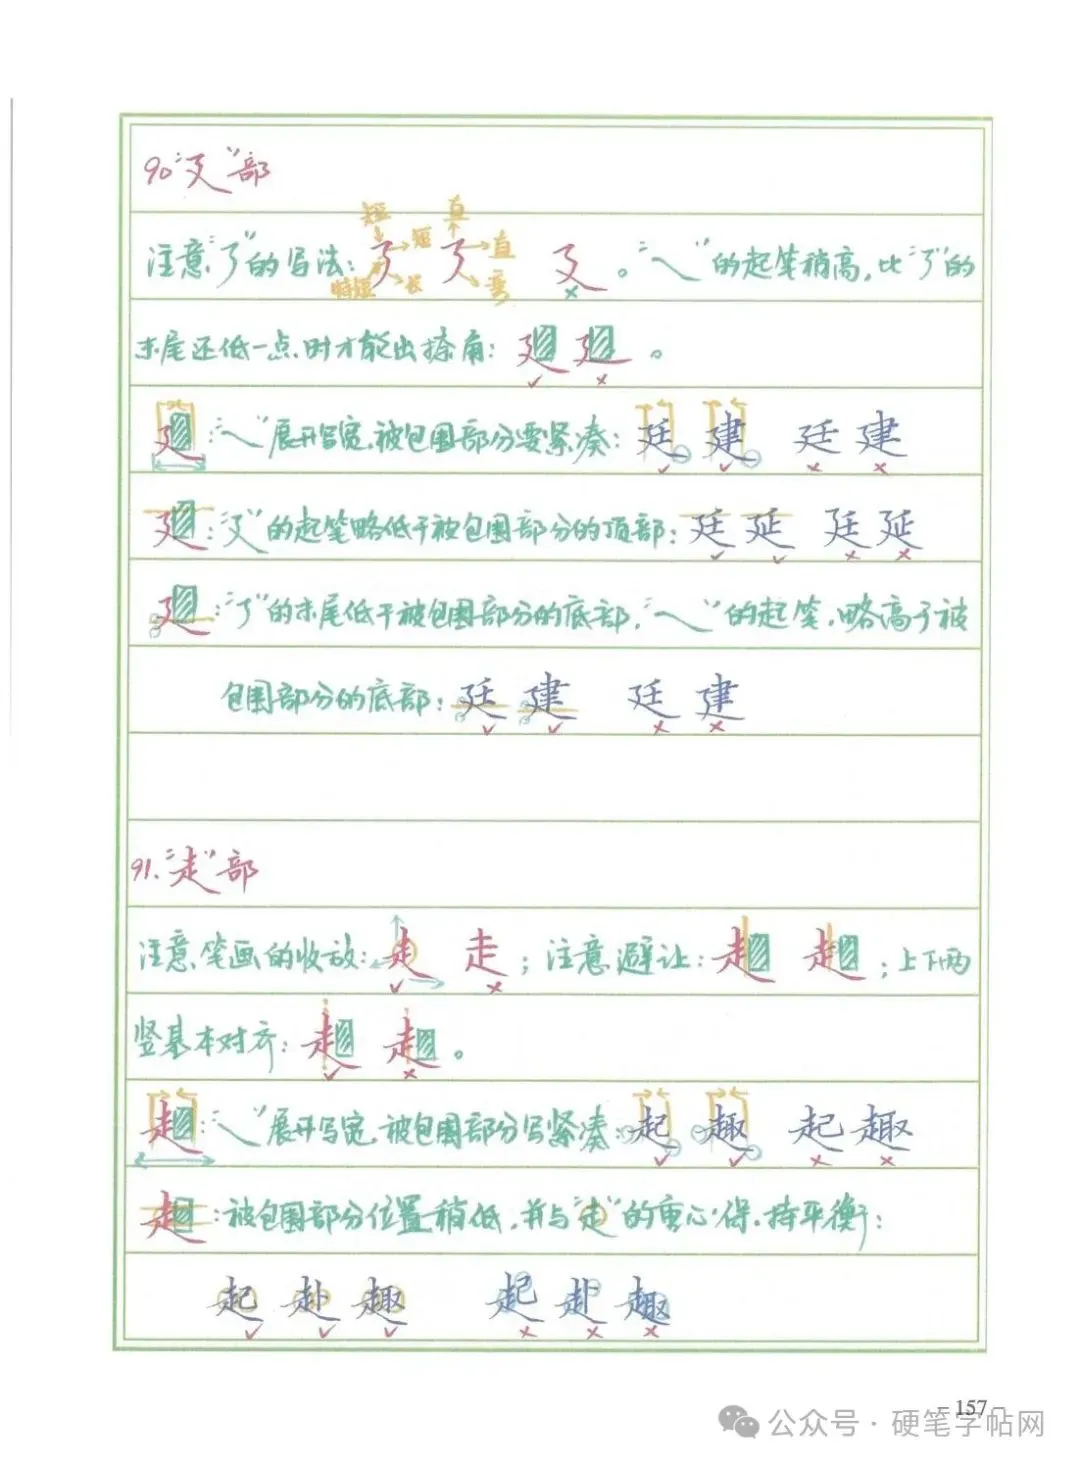 90“廴”部
短 直
注意“㇋”的写法：短 直 廴。“㇏”的起笔稍高，比“㇋”的
特短 长 弯 ×
末尾还低一点时才能出捺角：廴 廴。
✓ ×
廴：“㇏”展开写宽，被包围部分要紧凑：廷 建 廷 建
✓ ✓ × ×
廴：“廴”的起笔略低于被包围部分的顶部：廷 延 廷 延
✓ ✓ × ×
廴：“㇋”的末尾低于被包围部分的底部，“㇏”的起笔，略高于被
包围部分的底部：廷 建 廷 建
✓ ✓ × ×
91.“走”部
注意笔画的收放：走 走；注意避让：走 走；上下两
✓ ×
竖基本对齐：走 走。
✓ ×
走：“㇏”展开写宽，被包围部分写紧凑：起 趣 起 趣
✓ ✓ × ×
走：被包围部分位置稍低，并与“走”的重心保持平衡：
起 赴 趣 起 赴 趣
✓ ✓ ✓ × × ×
- 157 -
公众号·硬笔字帖网